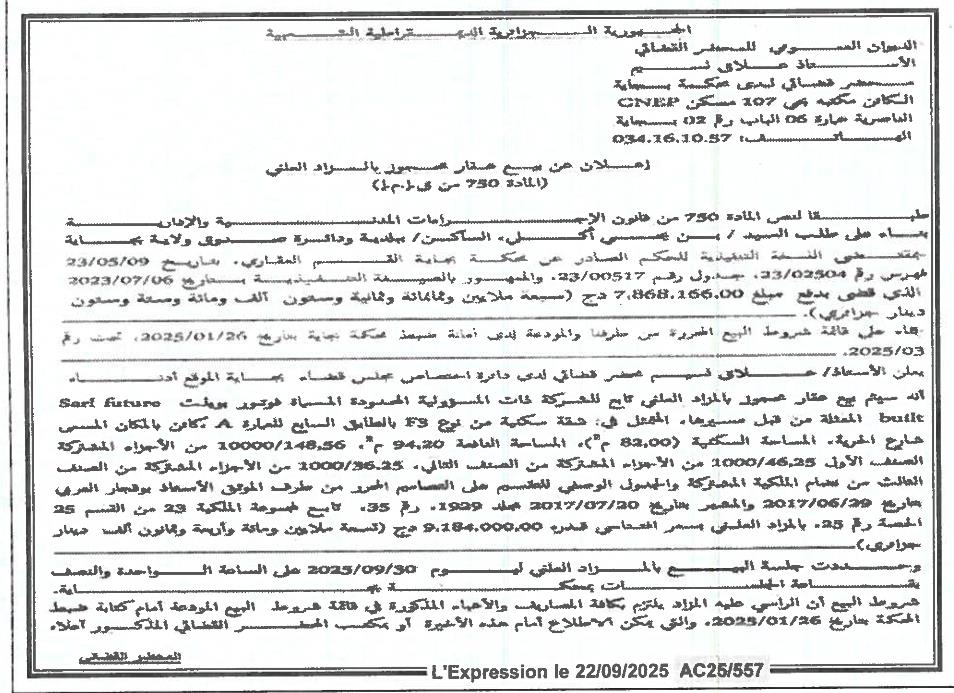 الجمهورية الجزائرية الديمقراطية الشعبية
الديوان العمومي للمحضر القضائي
الأستاذ علاق نسيم
محضر قضائي لدى محكمة بجاية
الكائن مكتبه بحي 107 مسكن CNEP
الناصرية عمارة 06 الباب رقم 02 بجاية
الهاتف: 034.16.10.57
إعلان عن بيع عقار محجوز بالمزاد العلني
(المادة 750 من ق.إ.م.إ)
طبقا لنص المادة 750 من قانون الإجراءات المدنية والإدارية
بناء على طلب السيد / بن يحيى أكلي، الساكن/ ببلدية ودائرة صدوق ولاية بجاية
بمقتضى النسخة التنفيذية للحكم الصادر عن محكمة بجاية القسم العقاري، بتاريخ 23/05/09
فهرس رقم 23/02504، جدول رقم 23/00517، والممهور بالصيغة التنفيذية بتاريخ 2023/07/06
الذي قضى بدفع مبلغ 7,868,166.00 دج (سبعة ملايين وثمانمائة وثمانية وستون ألف ومائة وستة وستون
دينار جزائري).
بناء على قائمة شروط البيع المحررة من طرفنا والمودعة لدى أمانة ضبط محكمة بجاية بتاريخ 2025/01/26، تحت رقم
2025/03.
يعلن الأستاذ/ علاق نسيم محضر قضائي لدى دائرة اختصاص مجلس قضاء بجاية الموقع أدناه
أنه سيتم بيع عقار محجوز بالمزاد العلني تابع للشركة ذات المسؤولية المحدودة المسماة فوتور بويلت Sarl future
built الممثلة من قبل مسيرها، المتمثل في: شقة سكنية من نوع F3 بالطابق السابع للعمارة A مكائن بالمكان المسمى
شارع الحرية، المساحة السكنية (82,00 م²)، المساحة النافعة 94,20 م²، 10000/148,56 من الأجزاء المشتركة
الصنف الأول 1000/46,25 من الأجزاء المشتركة من الصنف الثاني، 1000/36,25 من الأجزاء المشتركة من الصنف
الثالث من نظام الملكية المشتركة والجدول الوصفي للتقسيم على التصاميم المحرر من طرف الموثق الأستاذ بوقجار العربي
بتاريخ 2017/06/29 والمشهر بتاريخ 2017/07/20 مجلد 1929، رقم 35، تابع مجموعة الملكية 23 من القسم 25
الحصة رقم 25، بالمزاد العلني بسعر افتتاحي قدره 9,184,000.00 دج (تسعة ملايين ومائة وأربعة وثمانون ألف دينار
جزائري)
وحددت جلسة البيع بالمزاد العلني ليوم 2025/09/30 على الساعة الواحدة والنصف
بقاعة الجلسات بمحكمة بجاية.
شروط البيع أن الراسي عليه المزاد يلتزم بكافة المصاريف والأعباء المذكورة في قائمة شروط البيع المودعة أمام كتابة ضبط
المحكمة بتاريخ 2025/01/26، والتي يمكن الاطلاع أمام هذه الأخيرة أو بمكتب المحضر القضائي المذكور أعلاه
المحضر القضائي
L'Expression le 22/09/2025 AC25/557